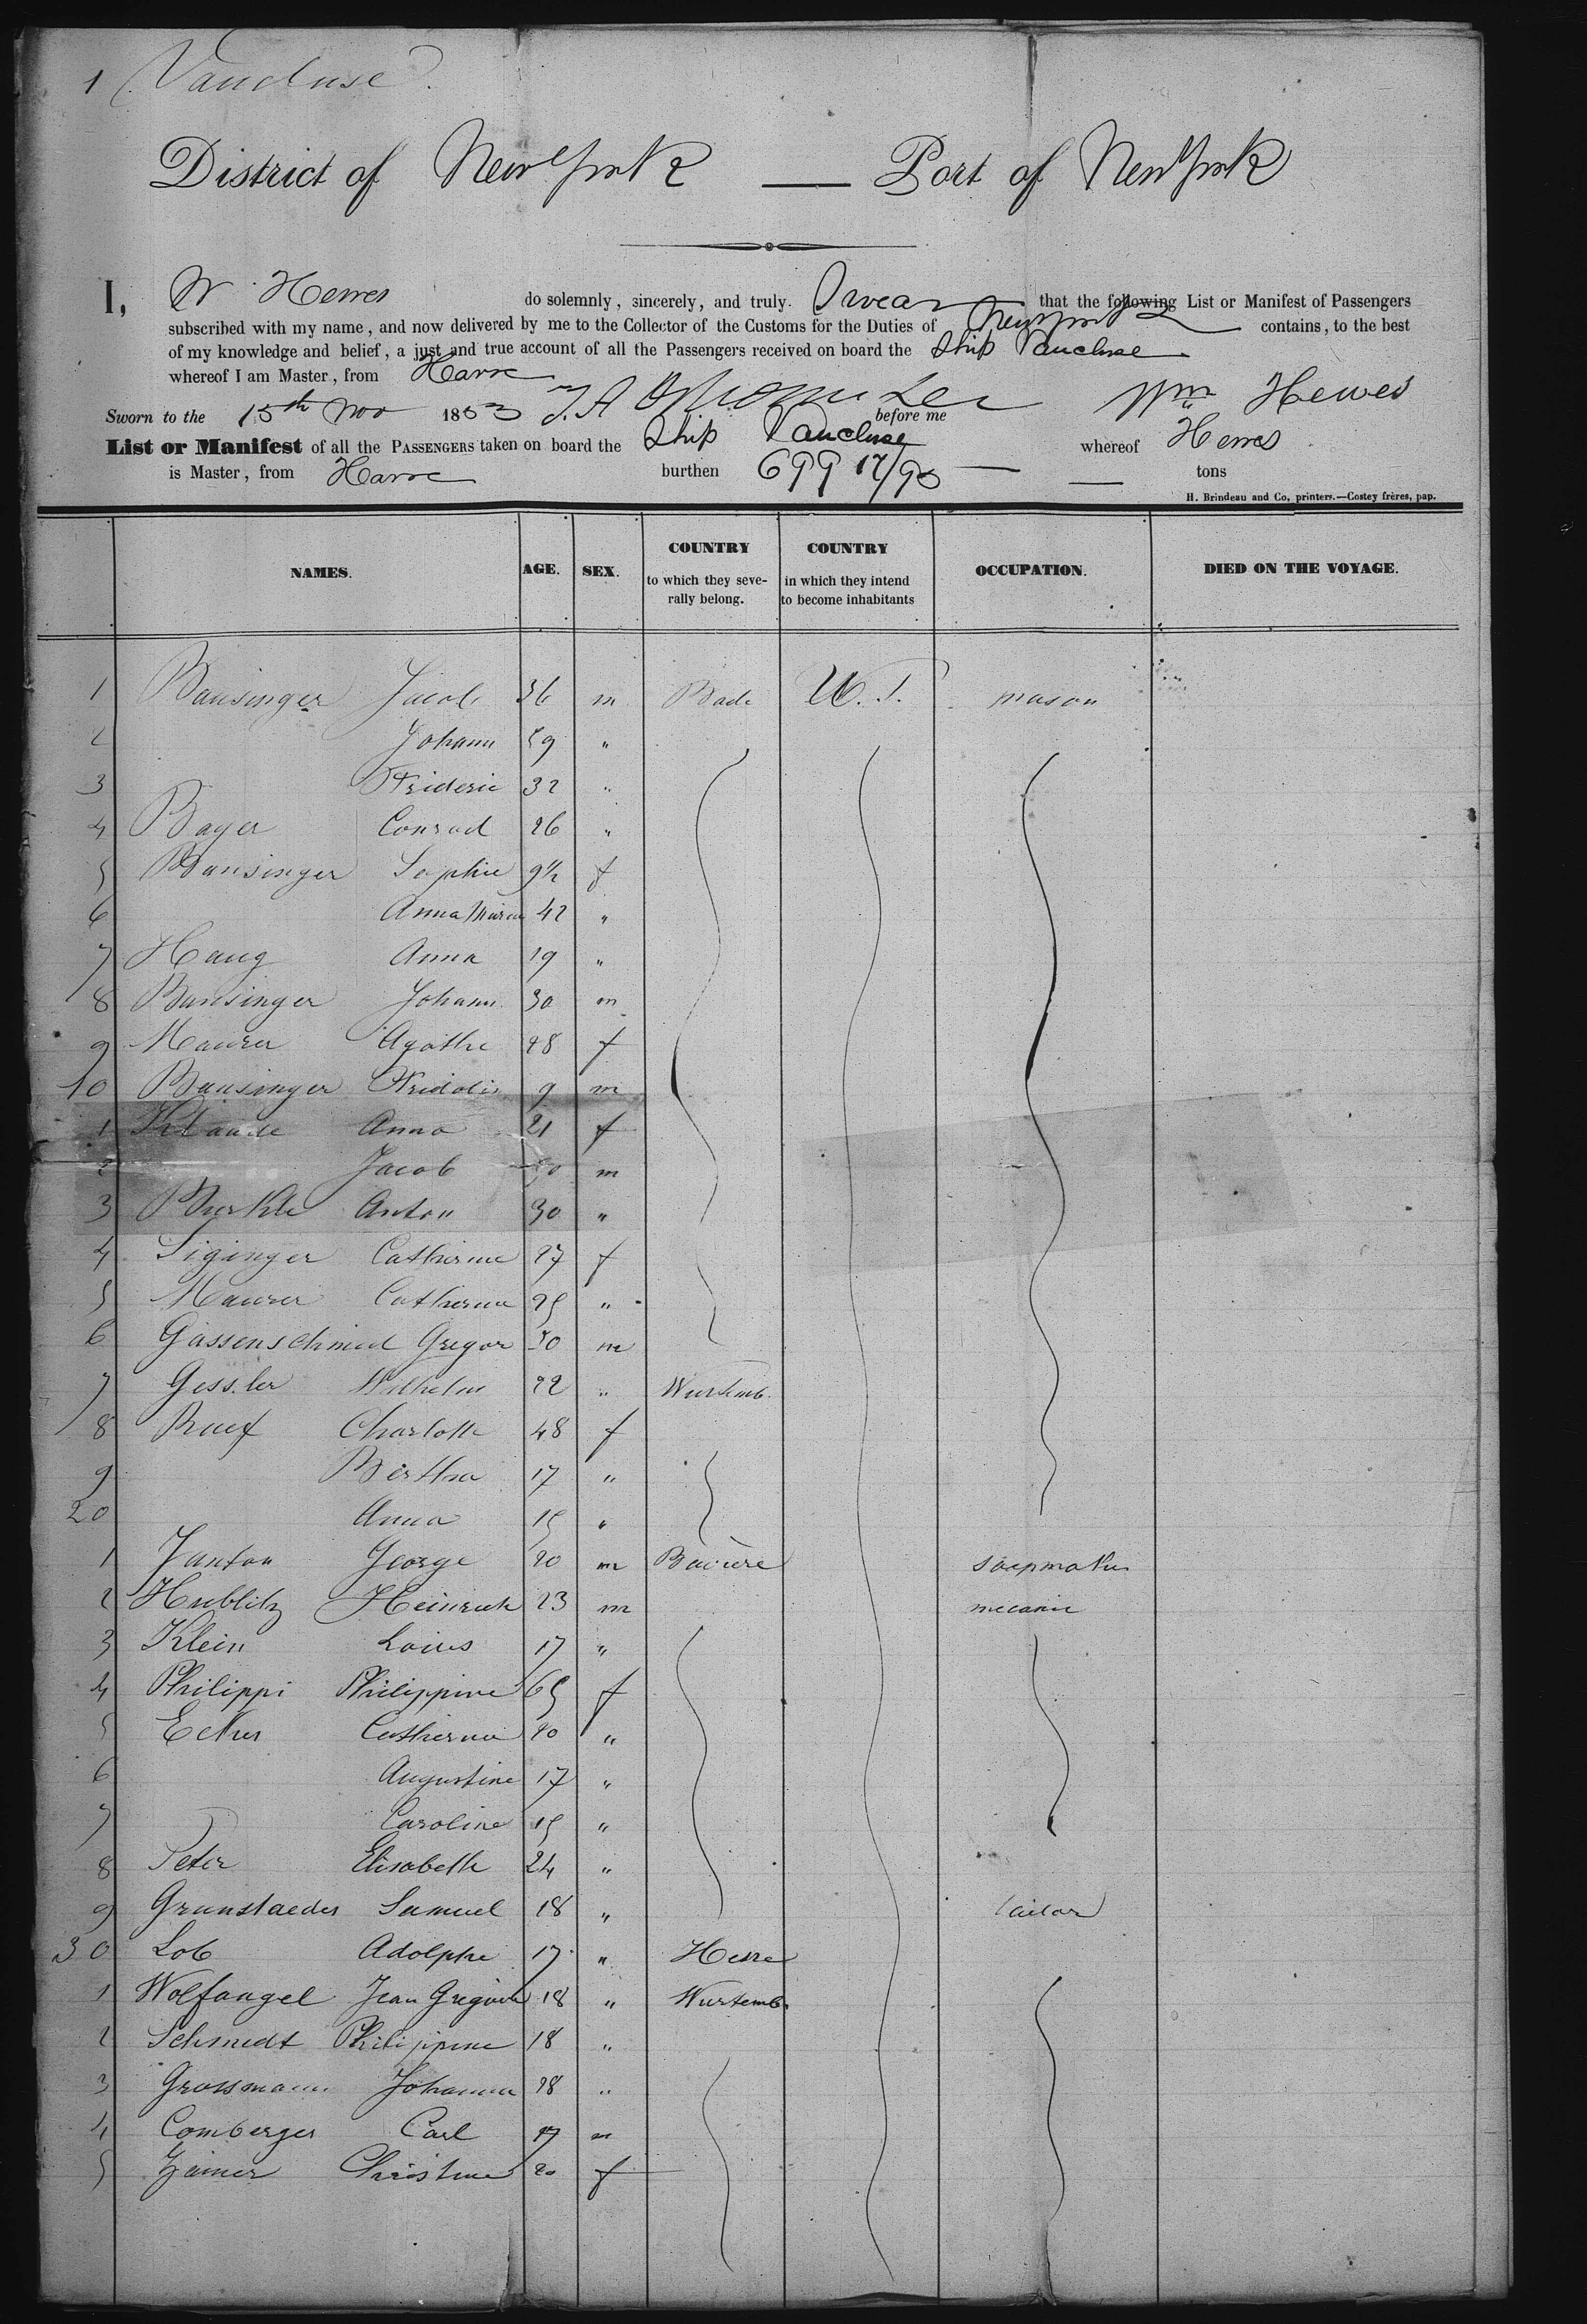 1 Vaucluse.
District of New York — Port of New York
I, W Hewes do solemnly, sincerely, and truly. Swear that the following List or Manifest of Passengers
subscribed with my name, and now delivered by me to the Collector of the Customs for the Duties of New York contains, to the best
of my knowledge and belief, a just and true account of all the Passengers received on board the Ship Vaucluse
whereof I am Master, from Havre
Sworn to the 15th Nov 1853 before me Wm Hewes
List or Manifest of all the PASSENGERS taken on board the Ship Vaucluse whereof Hewes
is Master, from Havre burthen 699 17/95 tons
H. Brindeau and Co, printers.—Costey frères, pap.
NAMES. AGE. SEX. COUNTRY to which they seve-rally belong. COUNTRY in which they intend to become inhabitants OCCUPATION. DIED ON THE VOYAGE.
1 Bausinger Jacob 36 m Bade U. S. mason
2 Johann 59 "
3 Frideric 32 "
4 Bayer Conrad 26 "
5 Bausinger Sophie 9½ f
6 Anna Maria 42 "
7 Haug Anna 19 "
8 Bausinger Johann 30 m
9 Maurer Agathe 28 f
10 Bausinger Fridolin 9 m
1 Anna 21 f
2 Jacob m
3 Burkle Anton 30 "
4 Siginger Catherine 27 f
5 Maurer Catherine 25 "
6 Gassenschmid Gregor 50 m
7 Gessler Wilhelm 22 " Wurtemb.
8 Ruef Charlotte 48 f
9 Bertha 17 "
20 Anna 15 "
1 Janton George 20 m Baviere soapmaker
2 Hublitz Heinrich 23 m mecanic
3 Klein Loius 17 "
4 Philippi Philippine 65 f
5 Ecker Catherina 20 "
6 Augustine 17 "
7 Caroline 15 "
8 Peter Elisabeth 24 "
9 Grunstaeder Samuel 18 " tailor
30 Lob Adolphe 17 " Hesse
1 Wolfangel Jean Gregoire 18 " Wurtemb.
2 Schmidt Philippine 18 "
3 Grossmann Johanna 28 "
4 Comberger Carl 17 m
5 Zainer Christine 20 f